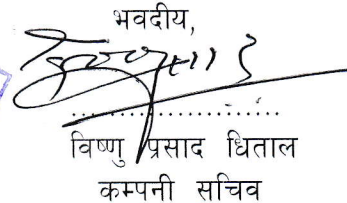 भवदीय,
....................
विष्णु प्रसाद धिताल
कम्पनी सचिव